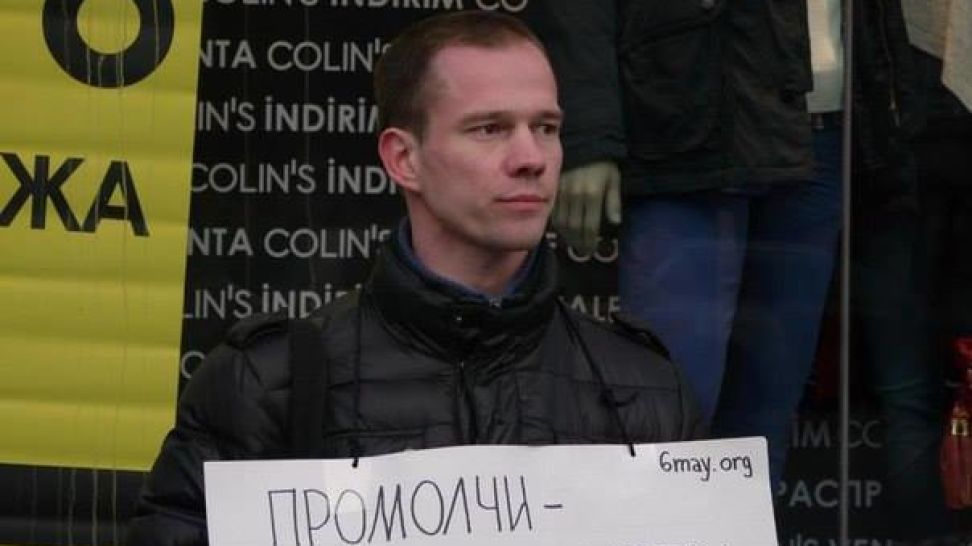 О
ЖА
COLIN'S İNDİRİM CO
NTA COLIN'S
IN'S İNDİRİM
COLIN'S İND
NTA COLIN'S
CO
LIN'S İNDİRİ
ALE
İM CO
РАСПР
6may.org
ПРОМОЛЧИ -